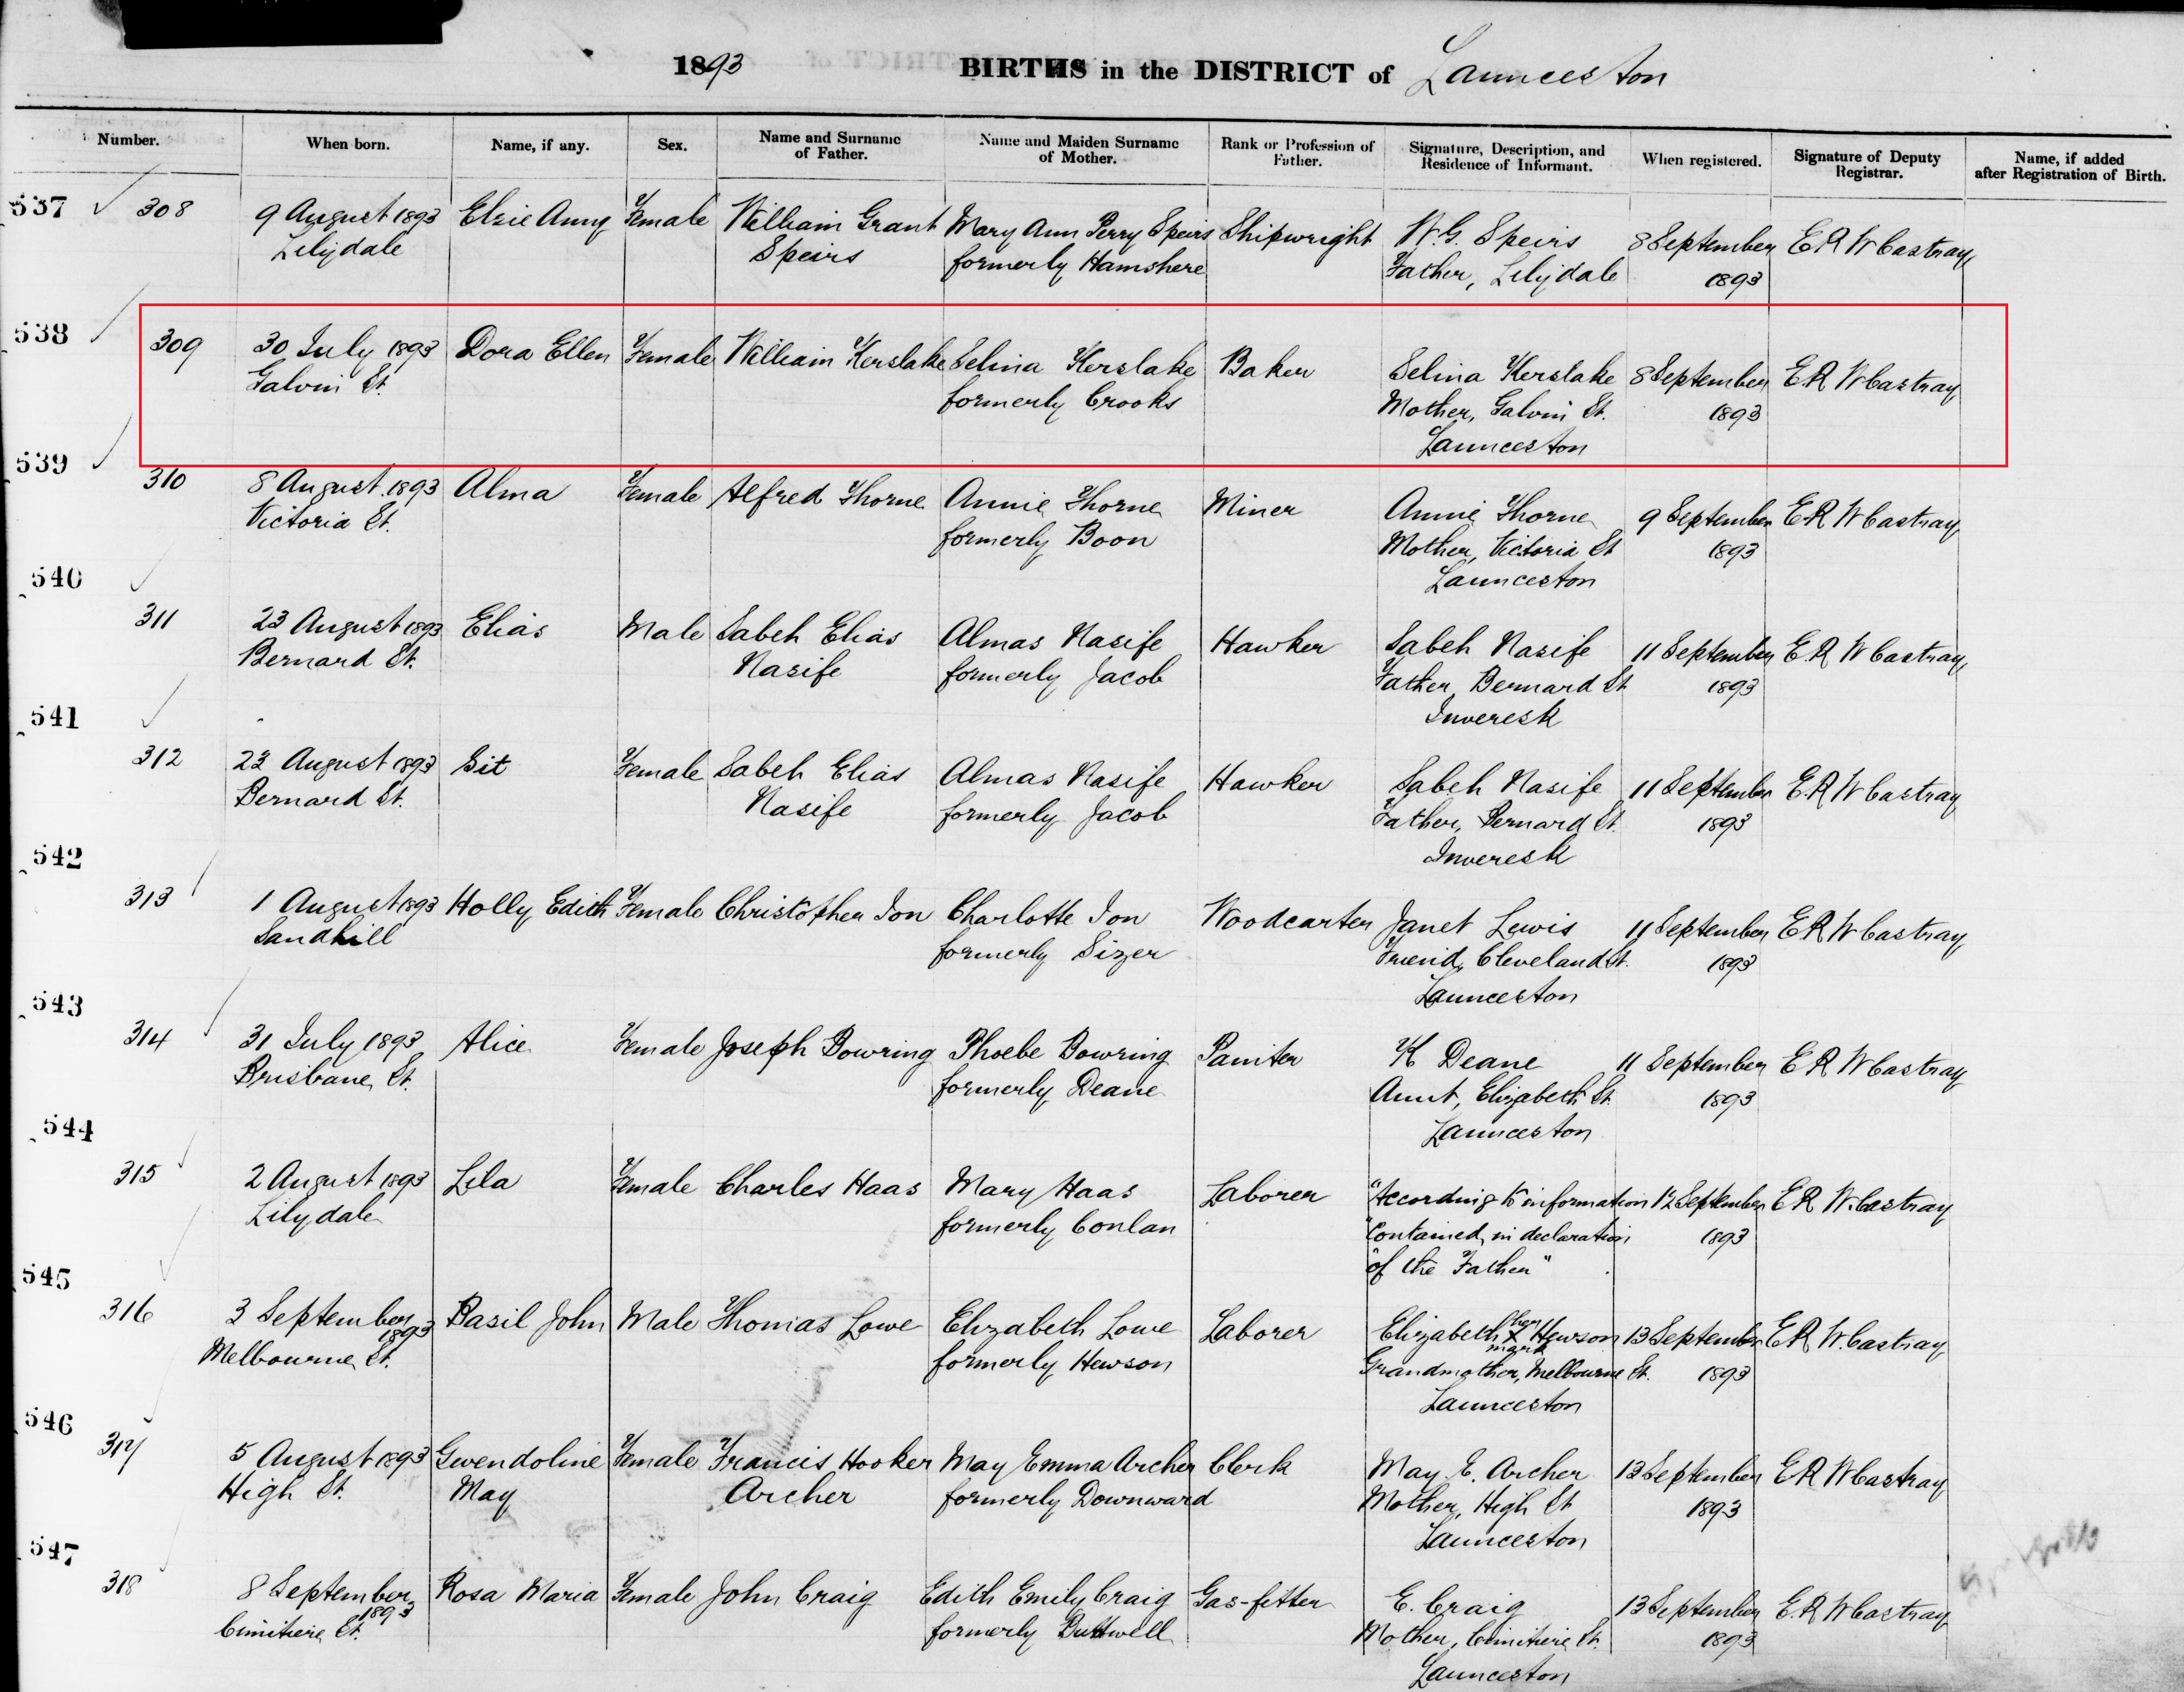 1893 BIRTHS in the DISTRICT of Launceston
Number. When born. Name, if any. Sex. Name and Surname of Father. Name and Maiden Surname of Mother. Rank or Profession of Father. Signature, Description, and Residence of Informant. When registered. Signature of Deputy Registrar. Name, if added after Registration of Birth.
537 308 9 August 1893 Elsie Annq Female William Grant Mary Ann Perry Speirs Shipwright W. G. Speirs 8 September E R W Castray
Lilydale Speirs formerly Hamshere Father, Lilydale 1893
538 309 30 July 1893 Dora Ellen Female William Kerslake Selina Kerslake Baker Selina Kerslake 8 September E R W Castray
Galvin St. formerly Crooks Mother, Galvin St. 1893
Launceston
539 310 8 August 1893 Alma Female Alfred Thorne Annie Thorne Miner Annie Thorne 9 September E R W Castray
Victoria St. formerly Boon Mother, Victoria St 1893
Launceston
540 311 23 August 1893 Elias Male Sabeh Elias Almas Nasife Hawker Sabeh Nasife 11 September E R W Castray
Bernard St. Nasife formerly Jacob Father, Bernard St 1893
Inveresk
541 312 23 August 1893 Sit Female Sabeh Elias Almas Nasife Hawker Sabeh Nasife 11 September E R W Castray
Bernard St. Nasife formerly Jacob Father, Bernard St. 1893
Inveresk
542 313 1 August 1893 Holly Edith Female Christopher Ion Charlotte Ion Woodcarter Janet Lewis 11 September E R W Castray
Sandhill formerly Sizer Friend, Cleveland St. 1893
Launceston
543 314 31 July 1893 Alice Female Joseph Bowring Phoebe Bowring Painter K Deane 11 September E R W Castray
Brisbane St. formerly Deane Aunt, Elizabeth St. 1893
Launceston
544 315 2 August 1893 Lila Female Charles Haas Mary Haas Laborer "According to information 12 September E R W. Castray
Lilydale formerly Conlan "contained in declaration 1893
"of the Father"
545 316 3 September 1893 Basil John Male Thomas Lowe Elizabeth Lowe Laborer Elizabeth her X mark Hewson 13 September E R W. Castray
Melbourne St. formerly Hewson Grandmother, Melbourne St. 1893
Launceston
546 317 5 August 1893 Gwendoline Female Francis Hooker May Emma Archer Clerk May E. Archer 13 September E R W Castray
High St. May Archer formerly Downward Mother, High St 1893
Launceston
547 318 8 September 1893 Rosa Maria Female John Craig Edith Emily Craig Gas-fitter E. Craig 13 September E. R W Castray
Cimitiere St. formerly Buttwell Mother, Cimitiere St. 1893
Launceston